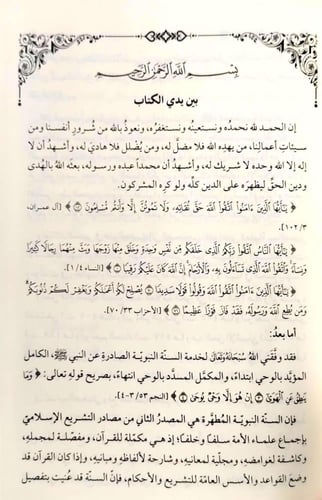 بِسْمِ اللَّهِ الرَّحْمَٰنِ الرَّحِيمِ
بين يدي الكتاب
إن الحمد لله نحمدُه ونستعينُه ونستغفرُه، ونعوذُ بالله من شُرورِ أنفسنا ومن
سيئاتِ أعمالِنا، من يهدِه الله فلا مضلَّ له، ومن يُضلل فلا هاديَ له، وأشهدُ أن لا
إله إلا الله وحده لا شريك له، وأشهدُ أن محمداً عبده ورسوله، بعثَه اللهُ بالهُدى
ودين الحقِّ ليظهرَه على الدين كلِّه ولو كره المشركون.
﴿ يَٰٓأَيُّهَا ٱلَّذِينَ ءَامَنُوا۟ ٱتَّقُوا۟ ٱللَّهَ حَقَّ تُقَاتِهِۦ وَلَا تَمُوتُنَّ إِلَّا وَأَنتُم مُّسْلِمُونَ ﴾ [آل عمران،
٣/١٠٢].
﴿ يَٰٓأَيُّهَا ٱلنَّاسُ ٱتَّقُوا۟ رَبَّكُمُ ٱلَّذِى خَلَقَكُم مِّن نَّفْسٍ وَٰحِدَةٍ وَخَلَقَ مِنْهَا زَوْجَهَا وَبَثَّ مِنْهُمَا رِجَالًا كَثِيرًا
وَنِسَآءً وَٱتَّقُوا۟ ٱللَّهَ ٱلَّذِى تَسَآءَلُونَ بِهِۦ وَٱلْأَرْحَامَ إِنَّ ٱللَّهَ كَانَ عَلَيْكُمْ رَقِيبًا ﴾ [النساء ٤/١].
﴿ يَٰٓأَيُّهَا ٱلَّذِينَ ءَامَنُوا۟ ٱتَّقُوا۟ ٱللَّهَ وَقُولُوا۟ قَوْلًا سَدِيدًا ۝ يُصْلِحْ لَكُمْ أَعْمَٰلَكُمْ وَيَغْفِرْ لَكُمْ ذُنُوبَكُمْ
وَمَن يُطِعِ ٱللَّهَ وَرَسُولَهُۥ فَقَدْ فَازَ فَوْزًا عَظِيمًا ﴾ [الأحزاب ٣٣/٧٠].
أما بعدُ:
فقد وفَّقني اللهُ سُبْحَانَهُ وَتَعَالَىٰ لخدمة السنّة النبويّة الصادرةِ عن النبي ﷺ، الكامل
المؤيَّد بالوحي ابتداءً، والمكمَّل المسدَّد بالوحي انتهاءً، بصريح قوله تعالى: ﴿ وَمَا
يَنطِقُ عَنِ ٱلْهَوَىٰٓ ۝ إِنْ هُوَ إِلَّا وَحْىٌ يُوحَىٰ ﴾ [النجم ٥٣/٣-٤].
فإن السنّة النبوية المُطهَّرة هي المصدرُ الثاني من مصادر التشريع الإسلاميِّ
بإجماع علماءِ الأمة سلفاً وخلفاً؛ إذ هي مكمِّلة للقرآن، ومفصِّلة لمجملِه،
وكاشفة لغوامضِه، ومجلِّية لمعانيه، وشارحة لألفاظه ومبانيه، وإذا كان القرآن قد
وضعَ القواعد والأسس العامة للتشريع والأحكام، فإنّ السنّة قد عُنيت بتفصيل